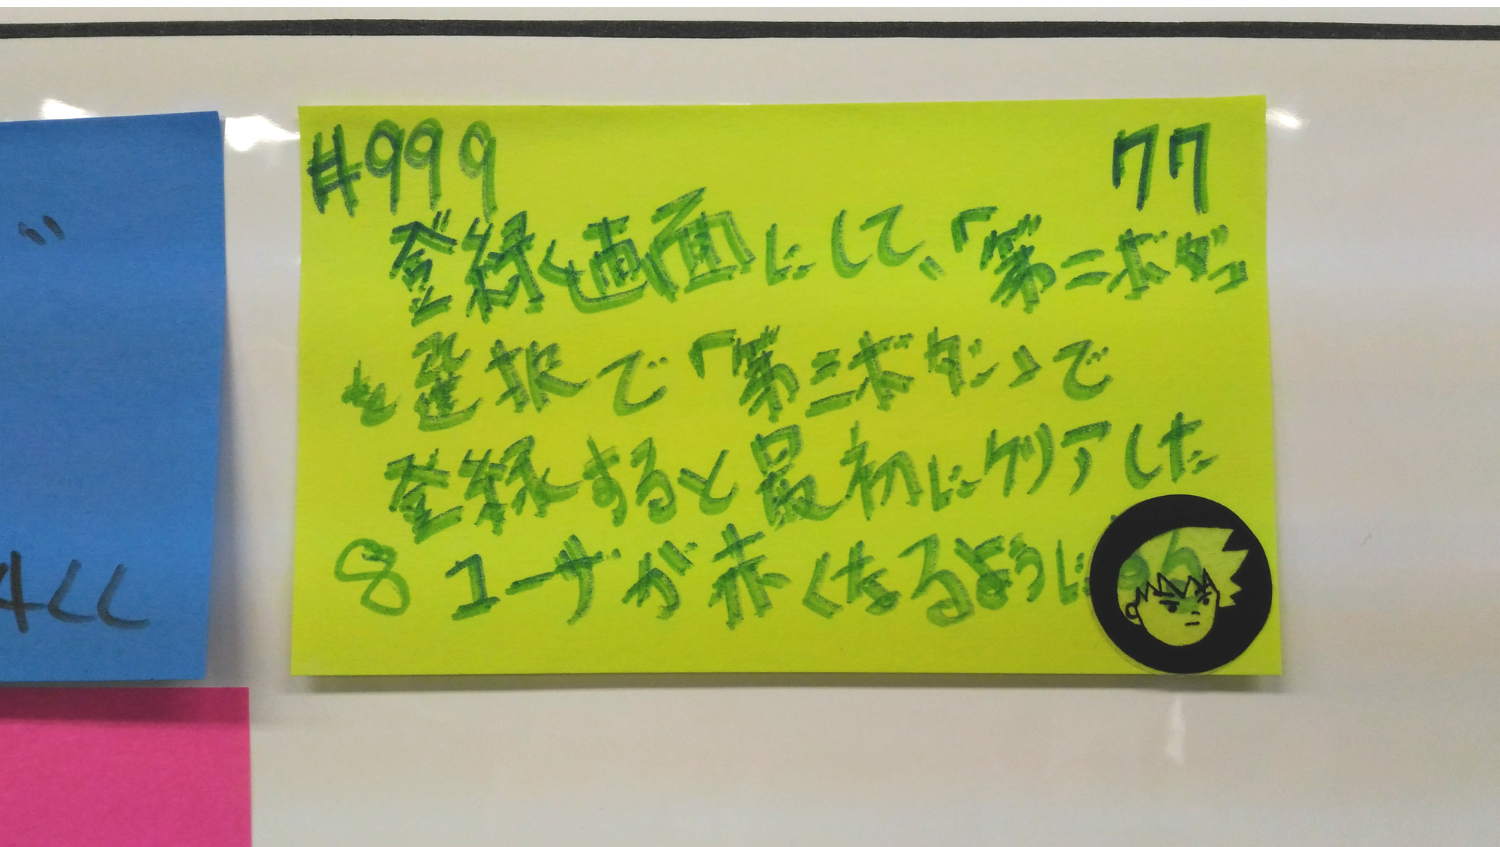 #999 77
登録画面にして、「第二ボタン
を選択で「第三ボタン」で
登録すると最初にクリアした
8 ユーザが赤くなるように